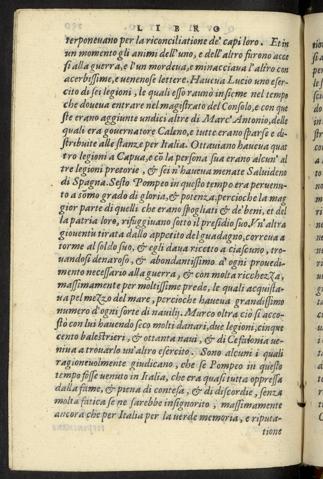 LIBRO
terponevano per la riconciliatione de' capi loro. Et in
un momento gli animi dell'uno, e dell'altro furono acce
si alla guerra, e l'un mordeva, e minacciava l'altro con
acerbissime, e venenose lettere. Haveva Lucio uno eser-
cito di sei legioni, le quali esso raunò insieme nel tempo
che doveva entrare nel magistrato del Consolo, e con que
ste erano aggiunte undici altre di Marc'Antonio, delle
quali era governatore Caleno, e tutte erano sparse e di-
stribuite alle stanze per Italia. Ottaviano haveva quat
tro legioni a Capua, e cō la persona sua erano alcun' al
tre legioni pretorie, & sei n'haveva menate Salvideno
di Spagna. Sesto Pompeo in questo tempo era pervenu-
to a sōmo grado di gloria, & potenza, percioche la mag
gior parte di quelli che erano spogliati & de' beni, et del
la patria loro, rifuggivano sotto il presidio suo. Vn'altra
gioventù tirata dallo appetito del guadagno, correva a
torme al soldo suo, & egli dava ricetto a ciascuno, tro-
vandosi denaroso, & abondantissimo d'ogni provedi-
mento necessario alla guerra, & con molta ricchezza,
massimamente per moltissime prede, le quali acquista-
va pel mezzo del mare, percioche haveva grandissimo
numero d'ogni sorte di navilij. Murco oltra ciò si acco-
stò con lui havendo seco molti danari, due legioni, cinque
cento balestrieri, & ottanta navi, & di Cefalonia ve-
niva a trovarlo un'altro esercito. Sono alcuni i quali
ragionevolmente giudicano, che se Pompeo in questo
tempo fosse venuto in Italia, che era quasi tutta oppressa
dalla fame, & piena di contese, & di discordie, senza
molta fatica se ne sarebbe insignorito, massimamente
ancora che per Italia per la verde memoria, e riputa-
tione